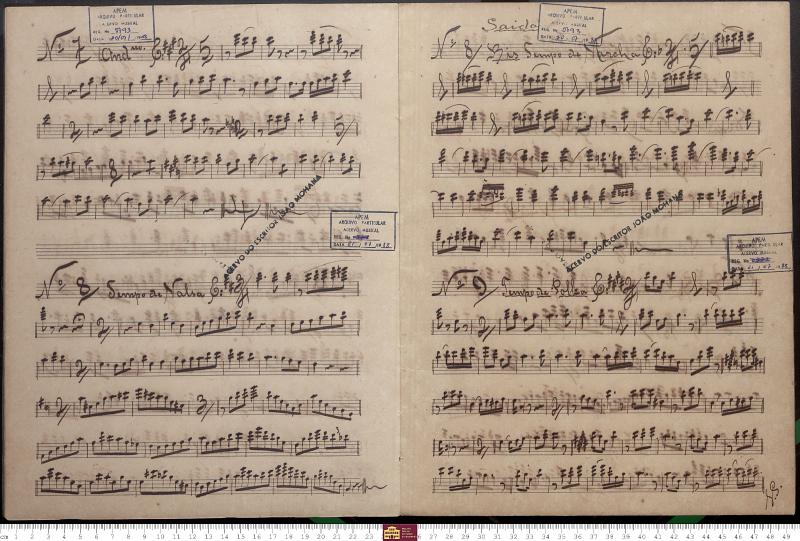 APEM
ARQUIVO PARTICULAR
ACERVO MUSICAL
REG. No. 0793
Nº 7 And
ACERVO DO ESCRITOR JOÃO MOHANA
APEM
ARQUIVO PARTICULAR
ACERVO MUSICAL
REG. No.
DATA 21 / 07 / 1988
Nº 8 Tempo de Valsa
Saida
APEM
ARQUIVO PARTICULAR
ACERVO MUSICAL
REG. No. 0793
Nº 8 Bis Tempo de Marcha
ACERVO DO ESCRITOR JOÃO MOHANA
APEM
ARQUIVO PARTICULAR
ACERVO MUSICAL
REG. No.
Nº 9 Tempo de Polka
cm 1 2 3 4 5 6 7 8 9 10 11 12 13 14 15 16 17 18 19 20 21 22 23 26 27 28 29 30 31 32 33 34 35 36 37 38 39 40 41 42 43 44 45 46 47 48 49